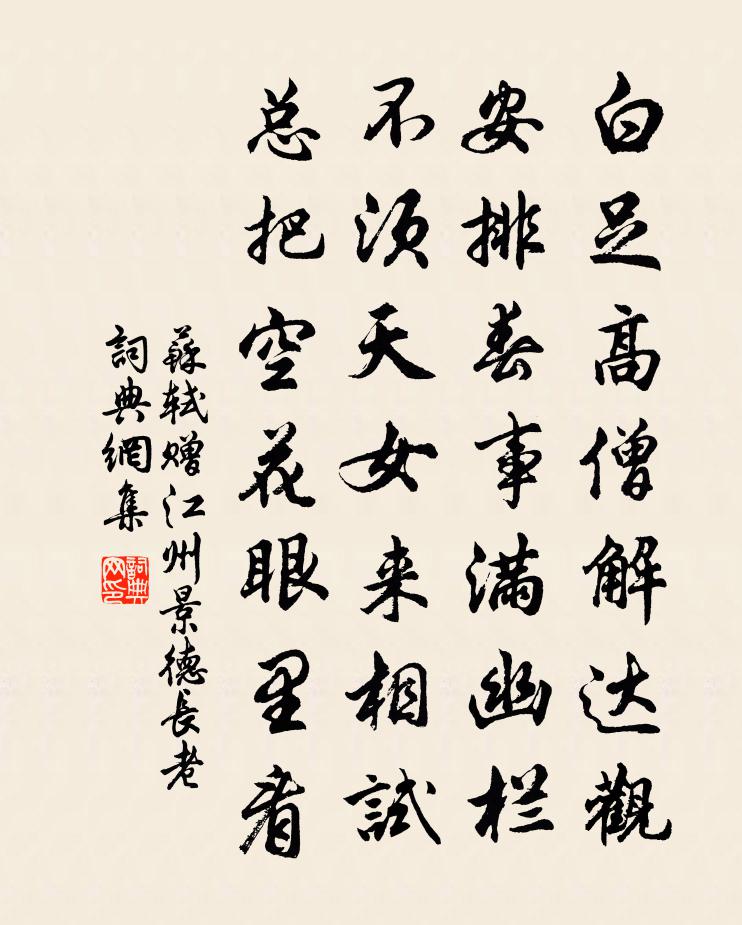 白足高僧解达觀
安排春事满幽栏
不须天女来相試
总把空花眼里看
蘇軾赠江州景德長老
詞典網集
詞典网印